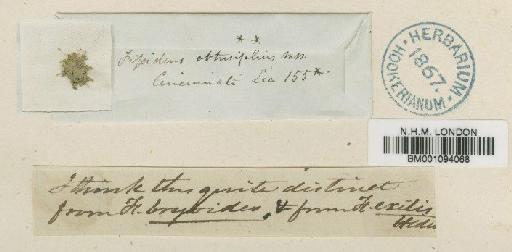 Fissidens obtusifolius mss.
Cincinnati Lea 155*
HERBARIUM HOOKERIANUM
1867.
N.H.M. LONDON
BM001094068
I think this quite distinct
from F. bryoides, & from F. exilis
Hedw